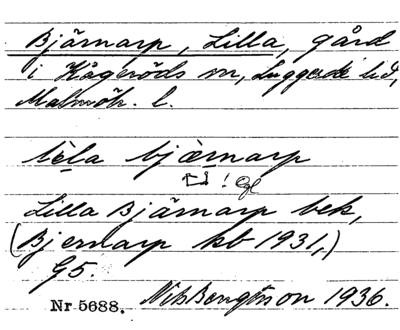 Bjärnarp, Lilla, gård
i Kågeröds sn, Luggude hd,
Malmöh. l.
lìla bjærnarp
! Gl
Lilla Bjärnarp bek,
(Bjernarp kb 1931,)
G5.
Nr 5688. Nils Bengtsson 1936.